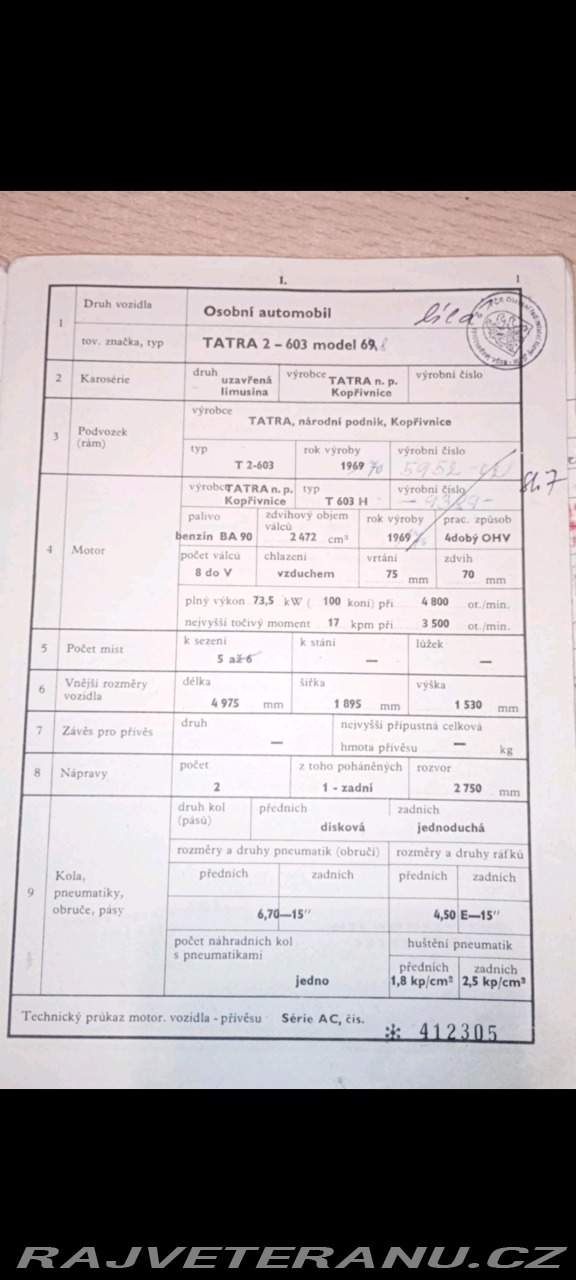 I. 1
1 Druh vozidla Osobní automobil
tov. značka, typ TATRA 2 – 603 model 69
2 Karosérie druh uzavřená limusina výrobce TATRA n. p. Kopřivnice výrobní číslo
3 Podvozek (rám) výrobce
TATRA, národní podnik, Kopřivnice
typ rok výroby výrobní číslo
T 2-603 1969 70
4 Motor výrobce TATRA n. p. Kopřivnice typ T 603 H výrobní číslo
palivo zdvihový objem válců rok výroby prac. způsob
benzin BA 90 2 472 cm³ 1969 4dobý OHV
počet válců chlazení vrtání zdvih
8 do V vzduchem 75 mm 70 mm
plný výkon 73,5 kW ( 100 koní) při 4 800 ot./min.
nejvyšší točivý moment 17 kpm při 3 500 ot./min.
5 Počet míst k sezení k stání lůžek
5 až 6 — —
6 Vnější rozměry vozidla délka šířka výška
4 975 mm 1 895 mm 1 530 mm
7 Závěs pro přívěs druh nejvyšší přípustná celková
— hmota přívěsu — kg
8 Nápravy počet z toho poháněných rozvor
2 1 - zadní 2 750 mm
9 Kola, pneumatiky, obruče, pásy
druh kol (pásů) předních zadních
disková jednoduchá
rozměry a druhy pneumatik (obručí) rozměry a druhy ráfků
předních zadních předních zadních
6,70—15'' 4,50 E—15''
počet náhradních kol s pneumatikami huštění pneumatik
předních zadních
jedno 1,8 kp/cm² 2,5 kp/cm²
Technický průkaz motor. vozidla - přívěsu Série AC, čís. ✻ 412305
RAJVETERANU.CZ